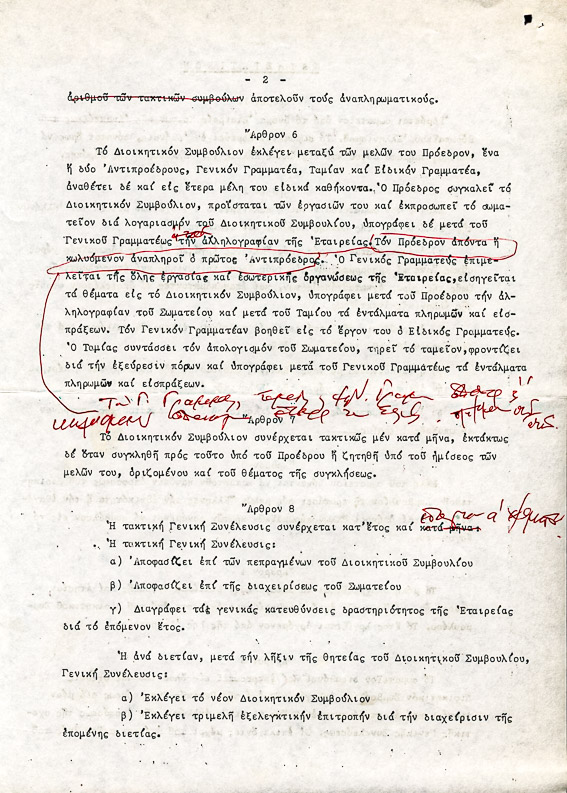 - 2 -
ἀριθμοῦ τῶν τακτικῶν συμβούλων ἀποτελοῦν τούς ἀναπληρωματικούς.
Ἄρθρον 6
Τό Διοικητικόν Συμβούλιον ἐκλέγει μεταξύ τῶν μελῶν του Πρόεδρον, ἕνα
ἤ δύο Ἀντιπροέδρους, Γενικόν Γραμματέα, Ταμίαν καί Εἰδικόν Γραμματέα,
ἀναθέτει δέ καί εἰς ἕτερα μέλη του εἰδικά καθήκοντα. Ὁ Πρόεδρος συγκαλεῖ τό
Διοικητικόν Συμβούλιον, προΐσταται τῶν ἐργασιῶν του καί ἐκπροσωπεῖ τό σωμα-
τεῖον διά λογαριασμόν τοῦ Διοικητικοῦ Συμβουλίου, ὑπογράφει δέ μετά τοῦ
Γενικοῦ Γραμματέως τήν ἀλληλογραφίαν τῆς Ἑταιρείας. Τόν Πρόεδρον ἀπόντα ἤ
κωλυόμενον ἀναπληροῖ ὁ πρῶτος Ἀντιπρόεδρος. Ὁ Γενικός Γραμματεύς ἐπιμε-
λεῖται τῆς ὅλης ἐργασίας καί ἐσωτερικῆς ὀργανώσεως τῆς Ἑταιρείας, εἰσηγεῖται
τά θέματα εἰς τό Διοικητικόν Συμβούλιον, ὑπογράφει μετά τοῦ Προέδρου τήν ἀλ-
ληλογραφίαν τοῦ Σωματείου καί μετά τοῦ Ταμίου τά ἐντάλματα πληρωμῶν καί εἰσ-
πράξεων. Τόν Γενικόν Γραμματέαν βοηθεῖ εἰς τό ἔργον του ὁ Εἰδικός Γραμματεύς.
Ὁ Ταμίας συντάσσει τόν ἀπολογισμόν τοῦ Σωματείου, τηρεῖ τό ταμεῖον, φροντίζει
διά τήν ἐξεύρεσιν πόρων καί ὑπογράφει μετά τοῦ Γενικοῦ Γραμματέως τά ἐντάλματα
πληρωμῶν καί εἰσπράξεων.
Ἄρθρον 7
Τό Διοικητικόν Συμβούλιον συνέρχεται τακτικῶς μέν κατά μῆνα, ἐκτάκτως
δέ ὅταν συγκληθῆ πρός τοῦτο ὑπό τοῦ Προέδρου ἤ ζητηθῆ ὑπό τοῦ ἡμίσεος τῶν
μελῶν του, ὁριζομένου καί τοῦ θέματος τῆς συγκλήσεως.
Ἄρθρον 8
Ἡ τακτική Γενική Συνέλευσις συνέρχεται κατ' ἔτος καί κατά μῆνα.
Ἡ τακτική Γενική Συνέλευσις:
α) Ἀποφασίζει ἐπί τῶν πεπραγμένων τοῦ Διοικητικοῦ Συμβουλίου
β) Ἀποφασίζει ἐπί τῆς διαχειρίσεως τοῦ Σωματείου
γ) Διαγράφει τάς γενικάς κατευθύνσεις δραστηριότητος τῆς Ἑταιρείας
διά τό ἑπόμενον ἔτος.
Ἡ ἀνά διετίαν, μετά τήν λῆξιν τῆς θητείας τοῦ Διοικητικοῦ Συμβουλίου,
Γενική Συνέλευσις:
α) Ἐκλέγει τό νέον Διοικητικόν Συμβούλιον
β) Ἐκλέγει τριμελῆ ἐξελεγκτικήν ἐπιτροπήν διά τήν διαχείρισιν τῆς
ἑπομένης διετίας.